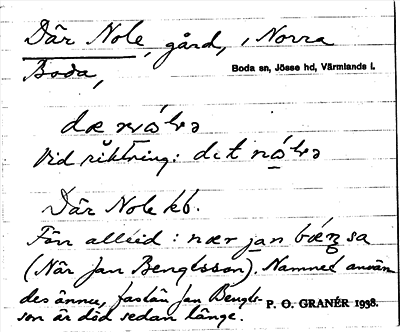 Där Nole, gård, i Norra
Boda,
Boda sn, Jösse hd, Värmlands l.
Vid riktning: det
Där Nole kö.
Förr alltid: nær jan
(När Jan Bengtsson). Namnet använ
des ännu, fastän Jan Bengts-
son är död sedan länge.
P. O. GRANÉR 1938.